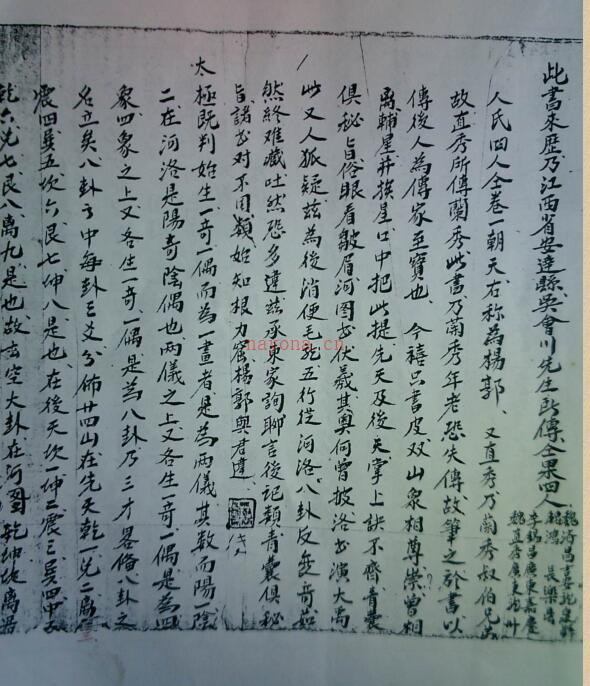 此書來歷乃江西省安遠縣吳會川先生所傳仝果四人
人氏四人仝卷一朝天右称為楊郭、又直秀乃蘭秀叔伯兄弟
故直秀所傳蘭秀此書乃蘭秀年老恐失傳故筆之於書以
傳後人為傳家至寶也、今禧只書皮双山众相尊崇曾相
輔星并挨星口中把此提先天及後天掌上訣不齊青囊
俱秘旨俗眼看皺眉河图㐲羲其奥何曾披洛書演大禹
此又人狐疑茲為後消便毛 五行從河洛八卦反变奇茹
然终难藏吐然恐多違茲承東家詢聊言後記類青囊俱秘
旨諸書对不用類始知根力 楊郭與君違
太極既判始生一奇一偶而為一畫者是為兩儀其数而陽一陰
二在河洛是陽奇陰偶也兩儀之上又各生一奇一偶是為四
象四象之上又各生一奇、一偶是為八卦乃三才畧俻八卦之
名立矣八卦 中每卦三爻分佈廿四山在先天乾一兑二离三
震四巽五坎六艮七坤八是也、在後天坎一坤二震三巽四中五
乾六兑七艮八离九是也故玄空大卦在河图 乾坤坎离
nayona.cn